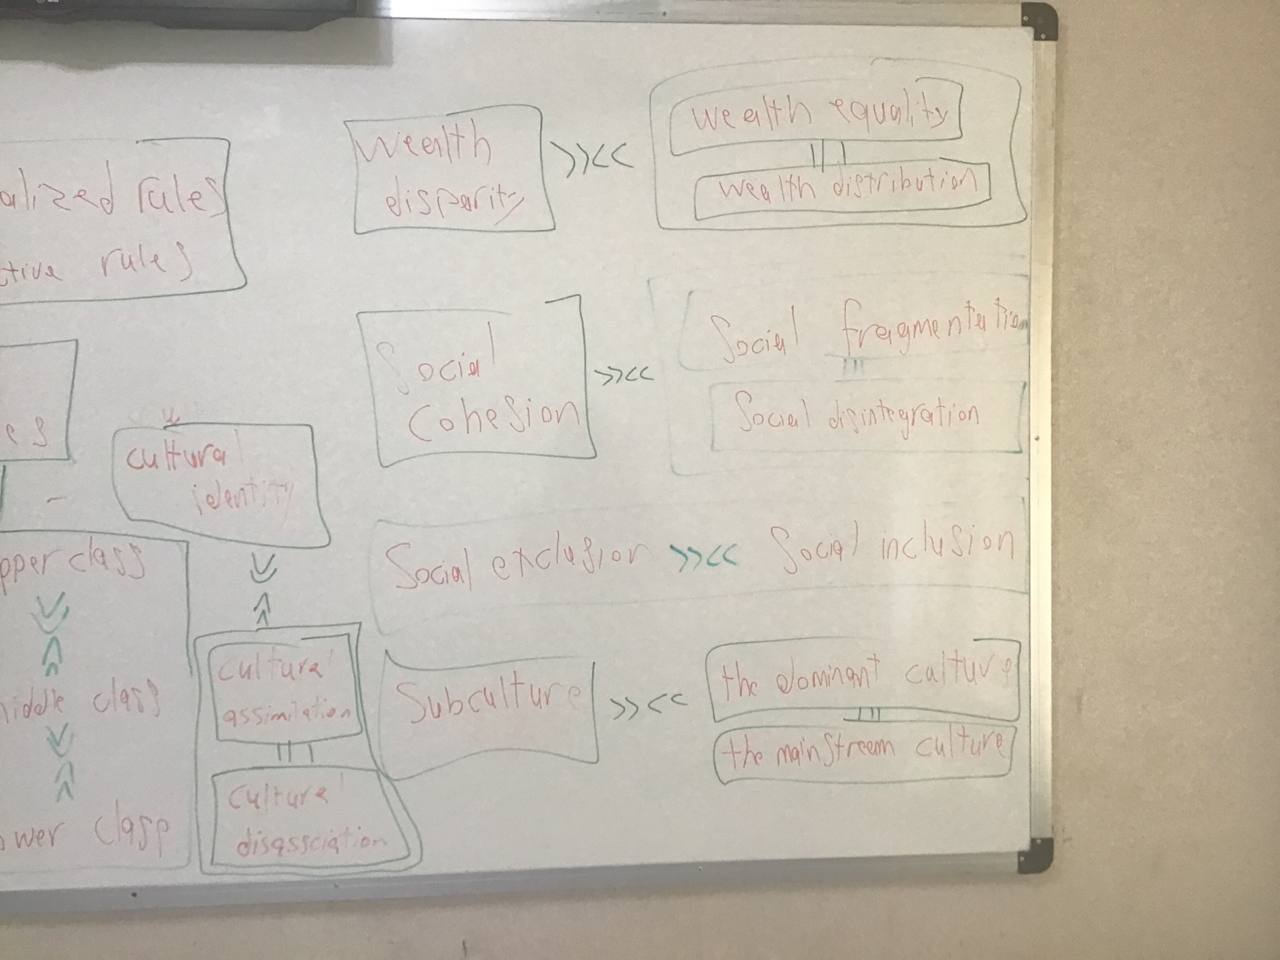 alized rules
ctive rules
es
pper class
middle class
ower class
cultural
identity
cultural
assimilation
cultural
disassciation
Wealth
disparity
>><<
Wealth equality
|||
Wealth distribution
Social
Cohesion
>><<
Social fragmentation
|||
Social disintegration
Social exclusion >><< Social inclusion
Subculture
>><<
the dominant culture
|||
the mainstream culture